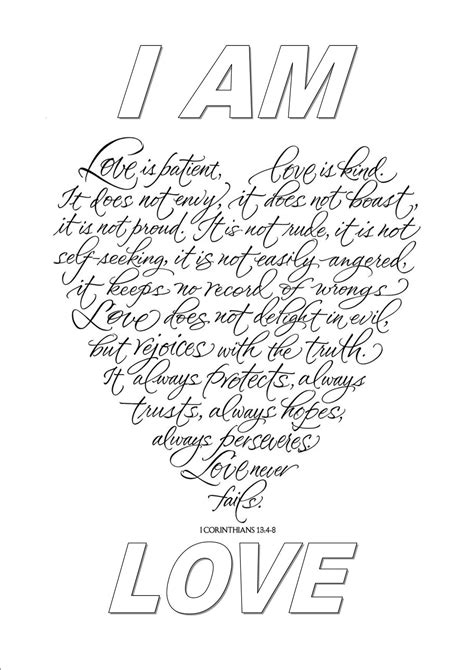 I AM
Love is patient, love is kind.
It does not envy, it does not boast,
it is not proud. It is not rude, it is not
self-seeking, it is not easily angered,
it keeps no record of wrongs
Love does not delight in evil,
but rejoices with the truth.
It always protects, always
trusts, always hopes,
always perseveres.
Love never
fails.
I CORINTHIANS 13:4-8
LOVE